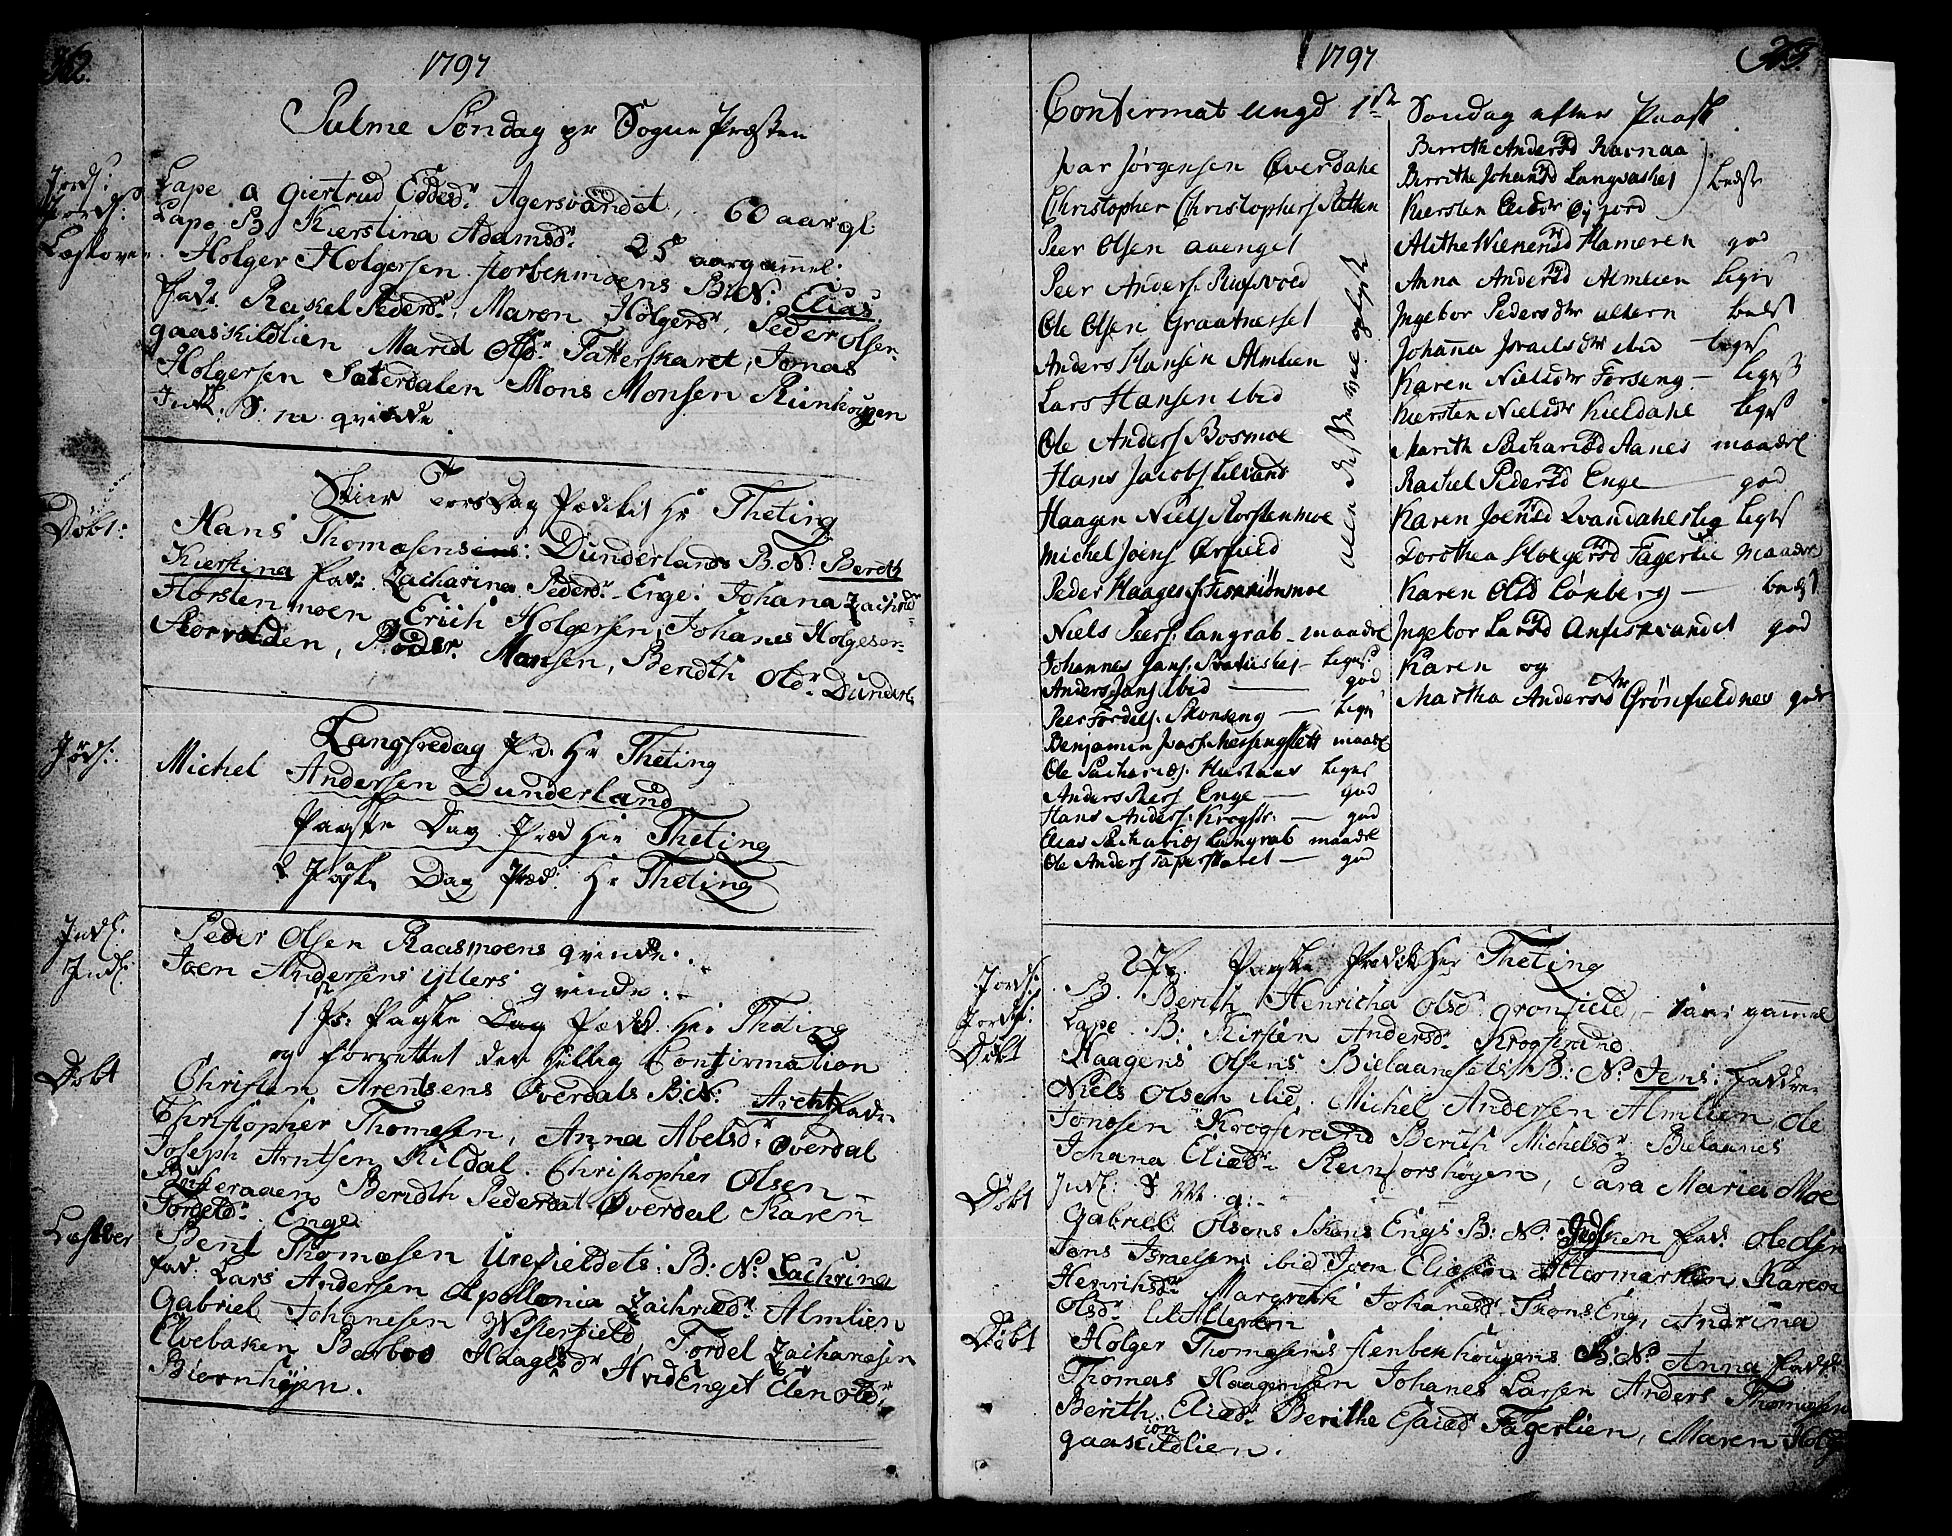 1797
Palme Søndag pr Sogne Præsten
Jords: Lape a Giertrud Edisd: Agersvandet, 60 aar gl
Jords: Lape B Kierstina Adamsd: 25 aar gammel.
Holger Holgersen Storbenmoens B: N: Elias
Fad: Rachel Pedersd:, Maren Holgersd:, Peder Olsen
Gaaskildlien Marid Olsd: Tatterskaret, Jonas
Holgersen Saterdalen Mons Monsen Riinhougen
Jntl: S: m: qvinde.
Skier Torsdag Prædiket Hr Theting
Døbt: Hans Thomæsens Dunderlands B: N: Bereth
Kierstina Fad: Zacharina Pedersd: Enge. Johana Zachisd:
Storstenmoen Erich Holgersen, Johanes Holgesen
Storvolden, Moder: Mansen, Beridth Olsd: Dunderl:
Langfredag Præd: Hr Theting
Jords: Michel Andersen Dunderland
Paaske Dag Præd Hr Theting
2 Paaske Dag Præd: Hr Theting
Jndl: Peder Olsen Raasmoens qvinde.
Jndl: Joen Andersens Ytters qvinde.
1 S: Paaske Dag Præd: Hr Theting
og forrettet den hellig Confirmation
Døbt Christen Arentsens Överdals B: N: Arent Fadr:
Christopher Thomesen, Anna Abelsd: Överdal
Joseph Arntsen Kildal. Christopher Olsen
Beridth Pedersdat Överdal Karen
Torgelsd: Enge
Bent Thomæsen Urefieldets: B: N: Zachrina
Fad: Lars Andersen Apollonia Zachried: Almlien
Gabriel Johanesen Westerfield Tordel Zachariæsen
Elvebaken Barbro Haagesdr Hvidenget Elen Olsd:
Biørnhöjen.
1797
Confirmat ungd 1ste Søndag efter Paaske
Jvar Jørgensen Øverdahl
Christopher Christophers Stilten
Peer Olsen Avenget
Peer Anders: Rufsvold
Ole Olsen Graatnesset
Anders Hansen Almlien
Lars Hansen ibid
Ole Anders Bosmoe
Hans Jacobs Lilvand
Haagen Niels Storstenmoe
Michel Joens Ørfield
Peder Haages
Niels Peers: Langrab - maadel
Johannes Jans: - ligesaa
Anders Jans ibid - god
Peer Fordels: Skonseng - ligs
Benjamin Jvars Messingslett maadel
Ole Zacharies: ligs
Anders Peers Enge - god
Hans Anders: Krogstr: - god
Elias Zacharies Langrab maadel
Ole Anders Taperskaret - god
Berrith Andersd Ravnaa
Berrithe Johansd Langvashei
Kiersten Eliædr Øyjord
beste
Alethe Nielsensd Hameren god
Anna Andersd Almlien ligs
Ingebor Pedersdr Altern bedst
Johanna Jsraelsdr ibid ligs
Karen Nielsdr Forseng - ligs
Kiersten Nielsdr Kieldahl ligs
Marith Zachariæd Aanes maadel
Rachel Pedersd Enge - god
Karen Joensd Svandahlslig ligs
Dorothea Holgersd Fagerlie maadel
Karen Olsd Lønberg - bedst
Ingebor Larsd Anfiskvandet god
Karen og
Martha Andersdr Grönfieldnes god
2 S: Paaske Prædik Her Theting
Jords: B. Berith Henricha Olsd: Grønfield, 1 aar gammel
Jords: Lape B: Kirsten Andersd: Krogstrand
Døbt Haagens Olsens Bielaanesets B: N: Jens: Faddre
Niels Olsen ibid. Michel Andersen Almlien Ole
Jonesen Krogstrand Berith Michelsdr Bielaanes
Johana Eliæd: Reinforshøgen, Sara Maria Moe
Jndl: S m q:
Døbt Gabriel Olsens Skons Engs B: N: Fad: Ole Olsen
Jons Jsraelsen ibid Joen Eliesen Altermarken Karen
Henrichsdr Margrethe Johanesd: Skons Eng, Andrina
Olsd: Lilalteren
Døbt Holger Thomæsens Stenbekhougens B: N: Anna Fadd:
Thomas Haagensen Johanes Larsen Anders Thomesen
Berith Eliæd: Berithe Esaiæd Fagerlien, Maren Holg
Gaaskildlien.